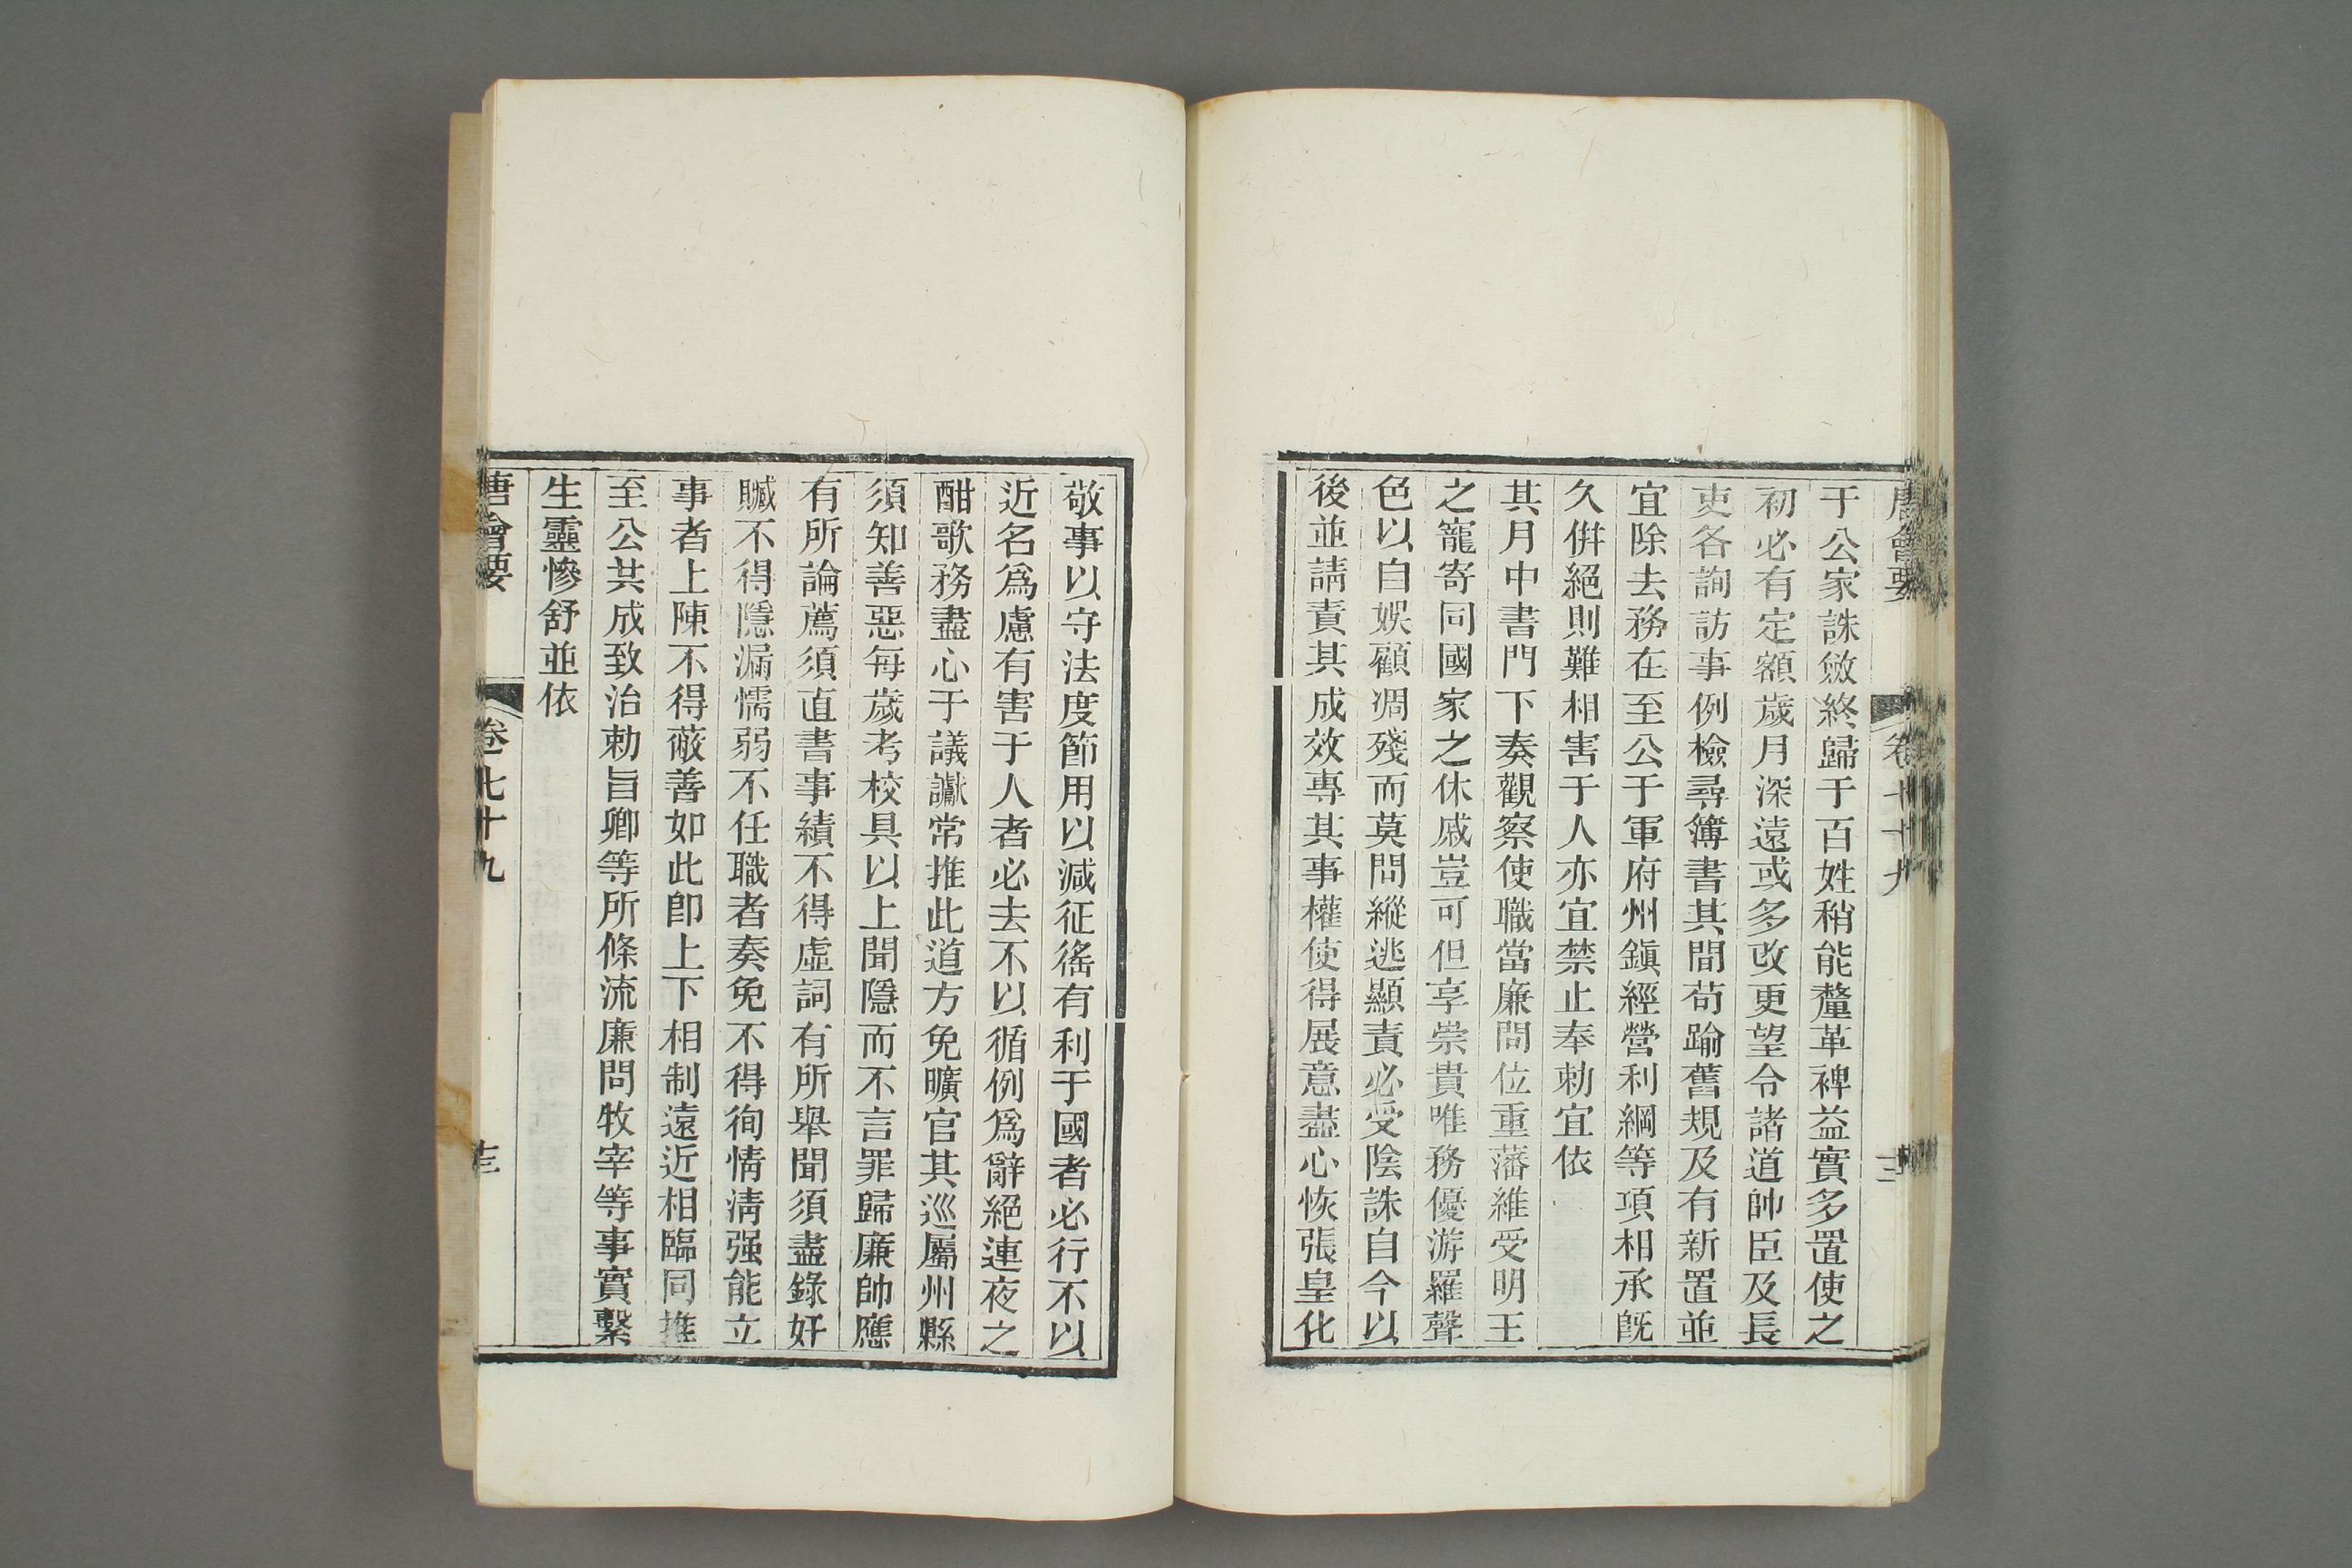 唐會要 卷七十九 十二
于公家誅斂終歸于百姓稍能釐革裨益實多置使之
初必有定額歲月深遠或多改更望令諸道帥臣及長
吏各詢訪事例檢尋簿書其間苟踰舊規及有新置並
宜除去務在至公于軍府州鎭經營利綱等項相承旣
久倂絕則難相害于人亦宜禁止奉勅宜依
其月中書門下奏觀察使職當廉問位重藩維受明王
之寵寄同國家之休戚豈可但享崇貴唯務優游羅聲
色以自娛顧凋殘而莫問縱逃顯責必受陰誅自今以
後並請責其成效專其事權使得展意盡心恢張皇化
敬事以守法度節用以減征徭有利于國者必行不以
近名爲慮有害于人者必去不以循例爲辭絕連夜之
酣歌務盡心于議讞常推此道方免曠官其巡屬州縣
須知善惡每歲考校具以上聞隱而不言罪歸廉帥應
有所論薦須直書事績不得虛詞有所舉聞須盡錄奸
贓不得隱漏懦弱不任職者奏免不得徇情淸强能立
事者上陳不得蔽善如此卽上下相制遠近相臨同推
至公共成致治勅旨卿等所條流廉問牧宰等事實繫
生靈慘舒並依
唐會要 卷七十九 十三